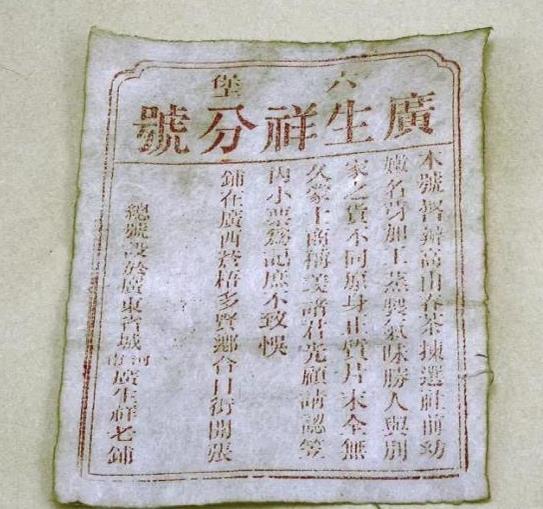 六堡
廣生祥分號
本號督辦高山春茶揀選社前幼
嫩名芽加工蒸製氣味勝人與別
家之貨不同原身正質片末全無
久蒙上商稱美諸君光顧請認笠
內小票爲記庶不致悞
鋪在廣西蒼梧多賢鄉合口街開張
總號設於廣東省城河南廣生祥老鋪